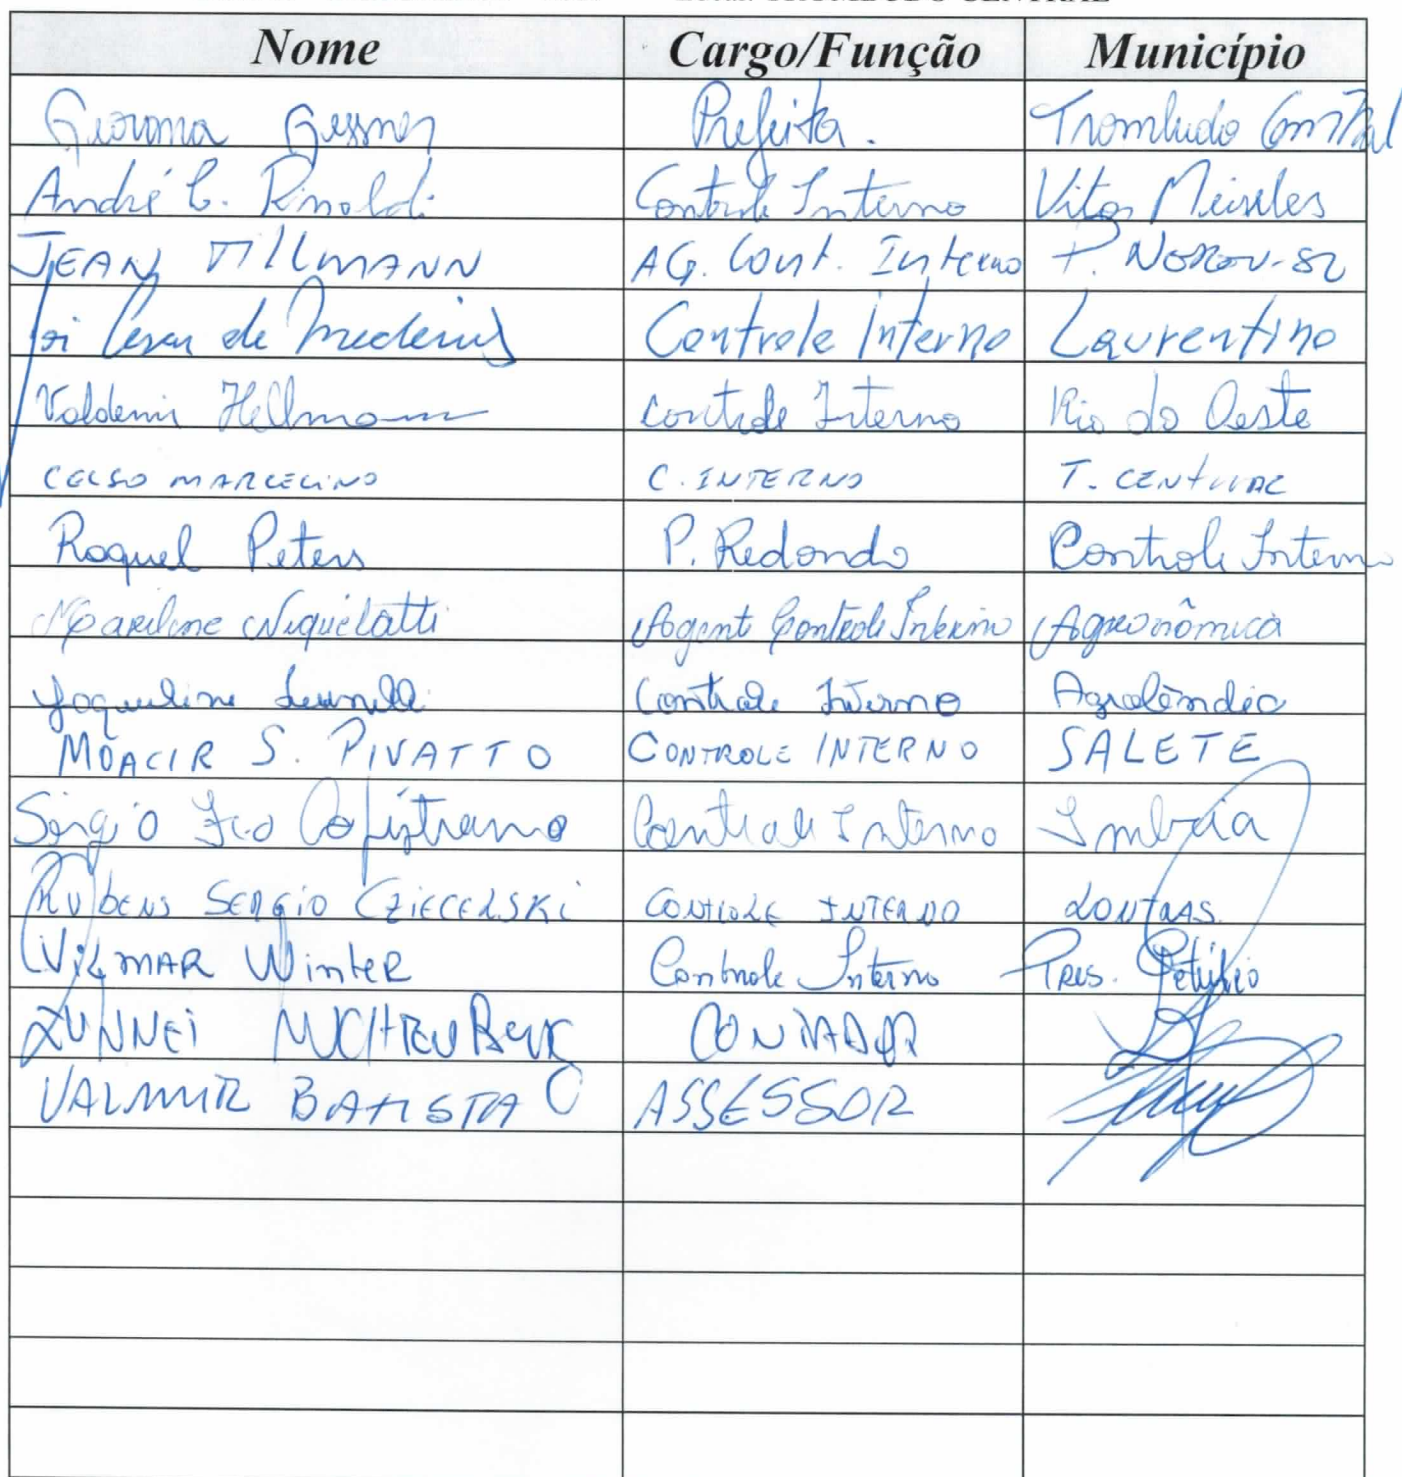 TROMBUDO CENTRAL
Nome Cargo/Função Município
Geovana Gessner Prefeita. Trombudo Central
André C. Rinaldi Controle Interno Vitor Meireles
JEAN TILLMANN AG. Cont. Interno P.
Cesar de Medeiros Controle Interno Laurentino
Valdemir Hellmann Controle Interno Rio do Oeste
CELSO MARCELINO C. INTERNO T. CENTRAL
Raquel Peters P. Redondo Controle Interno
Marilene Niquelatti Agent Controle Interno Agronômica
Jaqueline Controle Interno Agrolândia
MOACIR S. PIVATTO CONTROLE INTERNO SALETE
Sérgio Fco Capistrano Controle Interno Imbuia
RUBENS SERGIO CZIECELSKI CONTROLE INTERNO LONTRAS
VILMAR Winter Controle Interno PRES. Getúlio
CONTADOR
VALMIR BATISTA ASSESSOR